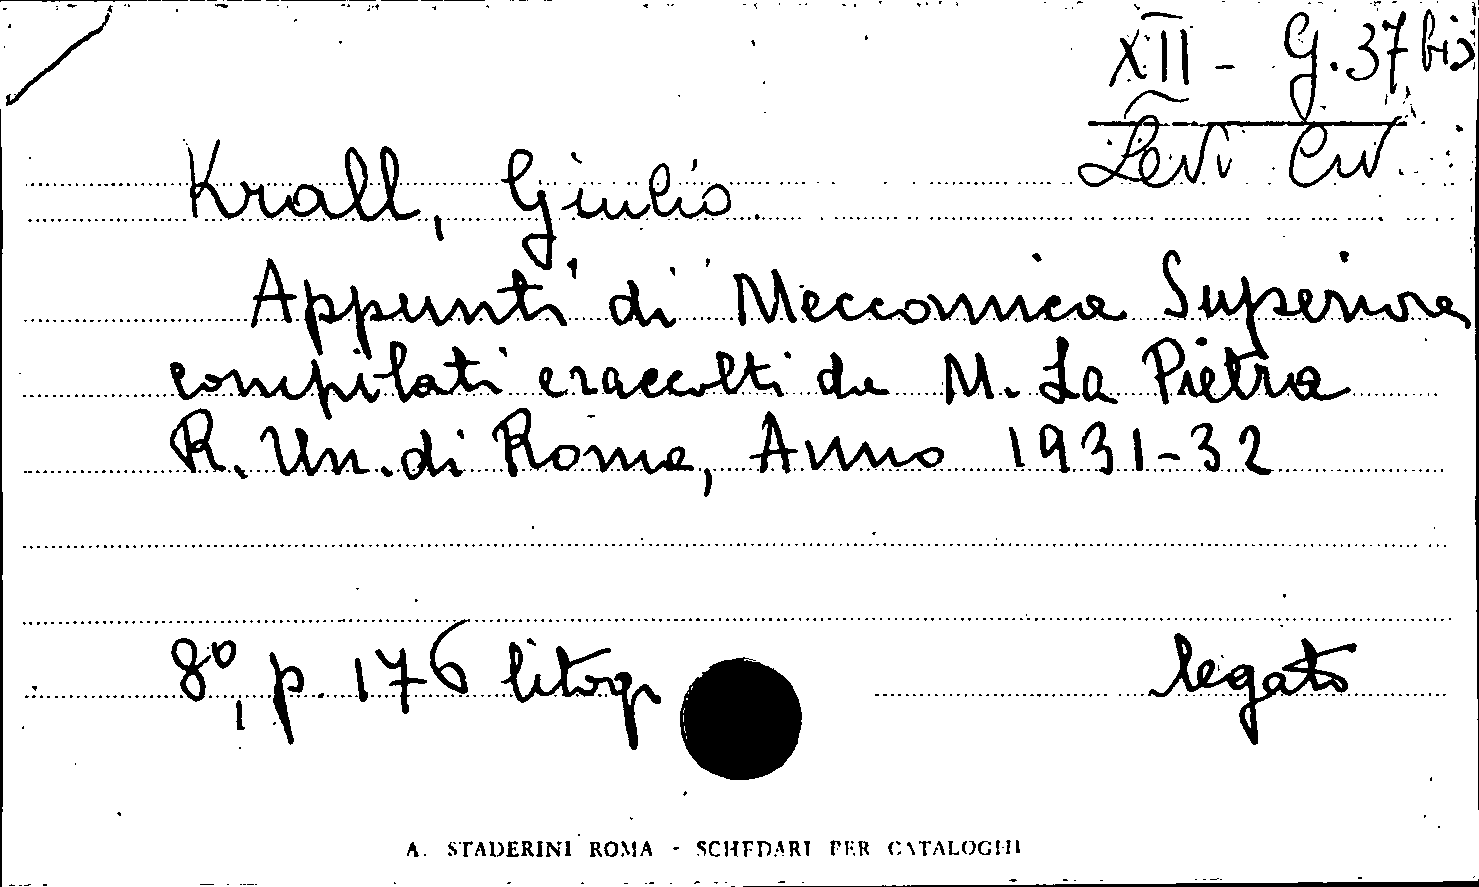 XII - G.37 bis
Levi Civ.
Krall, Giulio
Appunti di Meccanica Superiore
compilati e raccolti da M. La Pietra
R. Un. di Roma, Anno 1931-32
8º, p. 176 litogr
legato
A. STADERINI ROMA - SCHEDARI PER CATALOGHI